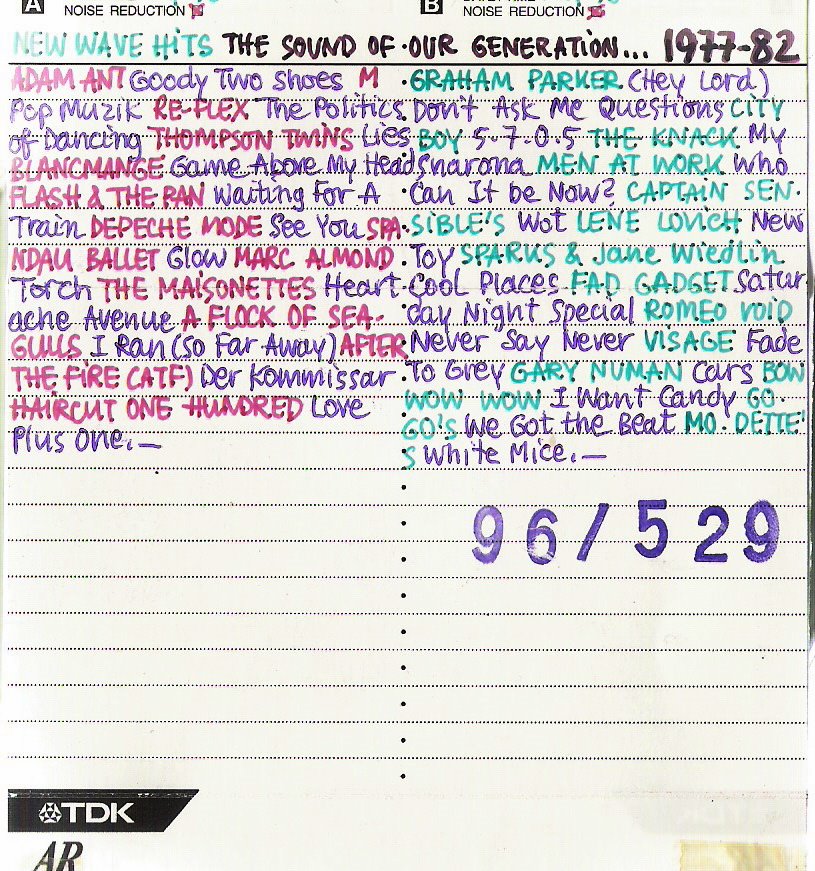 A
NOISE REDUCTION
B
NOISE REDUCTION
NEW WAVE HITS THE SOUND OF OUR GENERATION... 1977-82
ADAM ANT Goody Two Shoes M
Pop Muzik RE-FLEX The Politics
of Dancing THOMPSON TWINS Lies
BLANCMANGE Game Above My Head
FLASH & THE PAN Waiting For A
Train DEPECHE MODE See You SPA-
NDAU BALLET Glow MARC ALMOND
Torch THE MAISONETTES Heart
ache Avenue A FLOCK OF SEA-
GULLS I Ran (So Far Away) AFTER
THE FIRE (ATF) Der Kommissar
HAIRCUT ONE HUNDRED Love
Plus One.—
GRAHAM PARKER (Hey Lord)
Don't Ask Me Questions CITY
BOY 5-7-0-5 THE KNACK My
Sharona MEN AT WORK Who
Can It be Now? CAPTAIN SEN-
SIBLE'S Wot LENE LOVICH New
Toy SPARKS & Jane Wiedlin
Cool Places FAD GADGET Satur
day Night Special ROMEO VOID
Never Say Never VISAGE Fade
To Grey GARY NUMAN Cars BOW
WOW WOW I Want Candy GO-
GO's We Got the Beat MO-DETTE'
S White Mice.—
96/529
TDK
AR